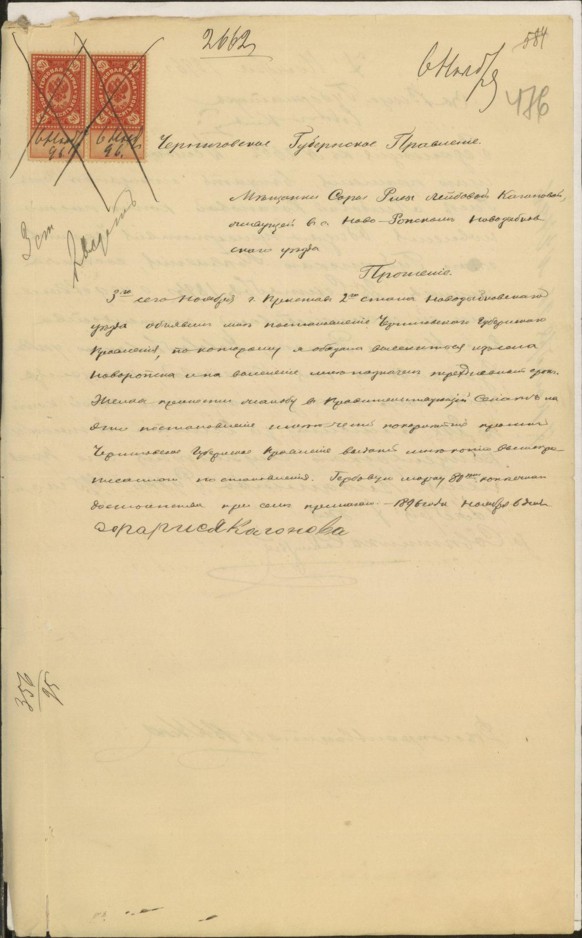 2662
6 Ноября
584
476
6 Ноя. 96.
6 Ноя. 96.
Черниговское Губернское Правление.
3 ст
Мещанки Соры Рисы Лейбовой Кагановой,
живущей в с. Ново-Ропском Новозыбков
скаго уезда
Прошение.
3го сего Ноября г. Приставъ 2го стана Новозыбковскаго
уезда объявилъ мне постановление Черниговскаго Губернскаго
Правления, по которому я обязана выселиться изъ села
Новоропска и на выселение мне назначенъ трехдневный срокъ.
Желая принести жалобу в Правительствующий Сенатъ на
это постановление имею честь покорнейше просить
Черниговское Губернское Правление выдать мне копию
постановления. Гербовую марку 80ти копеечнаго
достоинства при семъ прилагаю. 1896 года Ноября 6 дня
Сора Рися Каганова
350/95